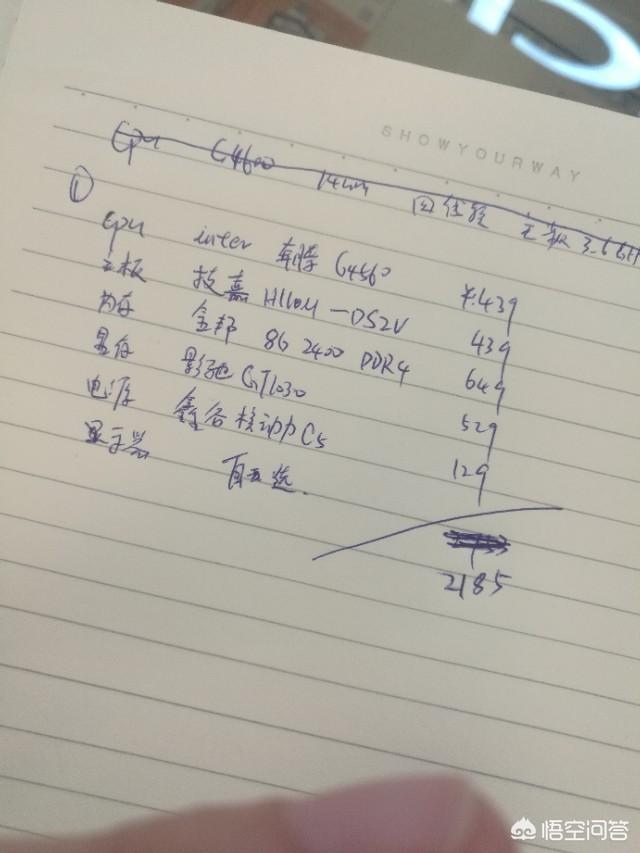 SHOWYOURWAY
Cpu G4600 14nm 四线程 主板 3.6GH
①
cpu inter 奔腾 G4560 ¥439
主板 技嘉 H110M-DS2V 439
内存 金邦 8G 2400 DDR4 649
显存 影驰 GT1030 529
电源 鑫谷核动力C5 129
显示器 自己选.
2185
悟空问答